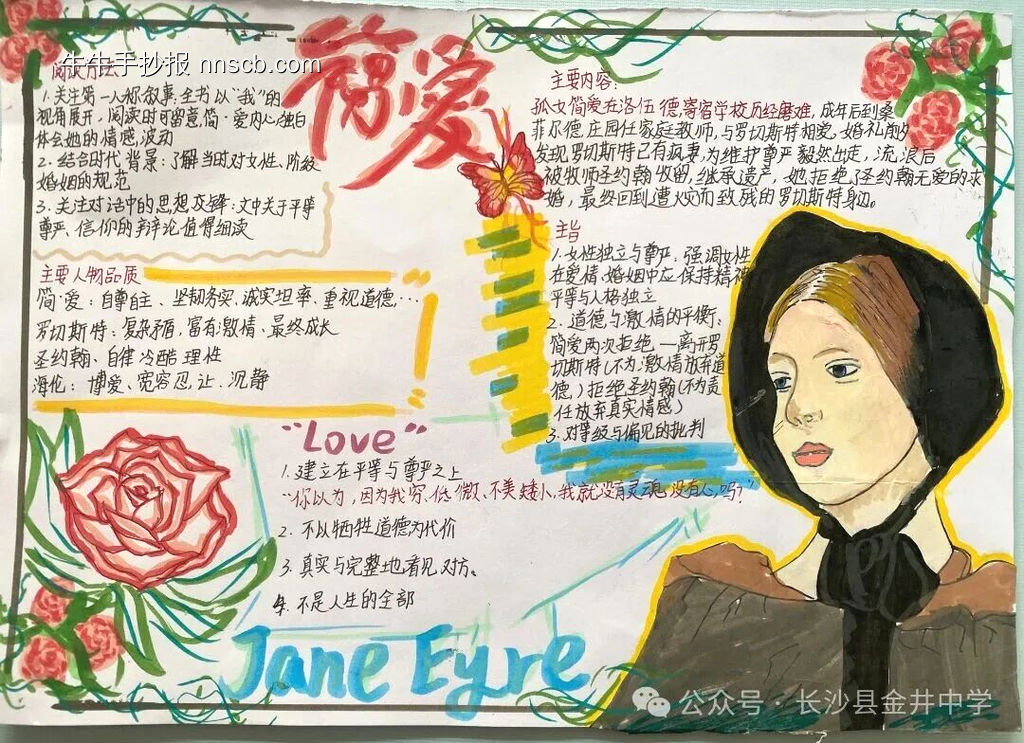 牛牛手抄报 nnscb.com
阅读方法
1.关注第一人称叙事:全书以“我”的
视角展开,阅读时可留意,简·爱内心独白
体会她的情感,波动
2.结合时代背景:了解当时对女性、阶级
婚姻的规范
3.关注对话中的思想交锋:文中关于平等
尊严、信仰的辩论值得细读
主要人物品质
简·爱:自尊自主、坚韧务实、诚实坦率、重视道德,…
罗切斯特:复杂矛盾、富有激情、最终成长
圣约翰·自律 冷酷 理性
海伦: 博爱、宽容忍,让、沉静
简爱
主要内容:
孤女简爱在洛伍德,寄宿学校历经磨难,成年后到桑
菲尔德庄园任家庭教师,与罗切斯特相爱,婚礼前夕
发现罗切斯特已有疯妻,为维护尊严毅然出走,流浪后
被牧师圣约翰收留,继承遗产,她拒绝了圣约翰无爱的求
婚,最终回到遭火灾而致残的罗切斯特身边。
主旨
1.女性独立与尊严:强调女性
在爱情、婚姻中应保持精神
平等与人格独立
2.道德与激情的平衡:
简爱两次拒绝一离开罗
切斯特(不为激情放弃道
德,)拒绝圣约翰(不为责
任放弃真实情感)
3.对等级与偏见的批判
“Love”
1.建立在平等与尊严之上
“你以为,因为我穷、低微、不美、矮小,我就没有灵魂,没有心,吗?”
2.不以牺牲道德为代价
3.真实与完整地看见对方。
4.不是人生的全部
Jane Eyre
公众号·长沙县金井中学